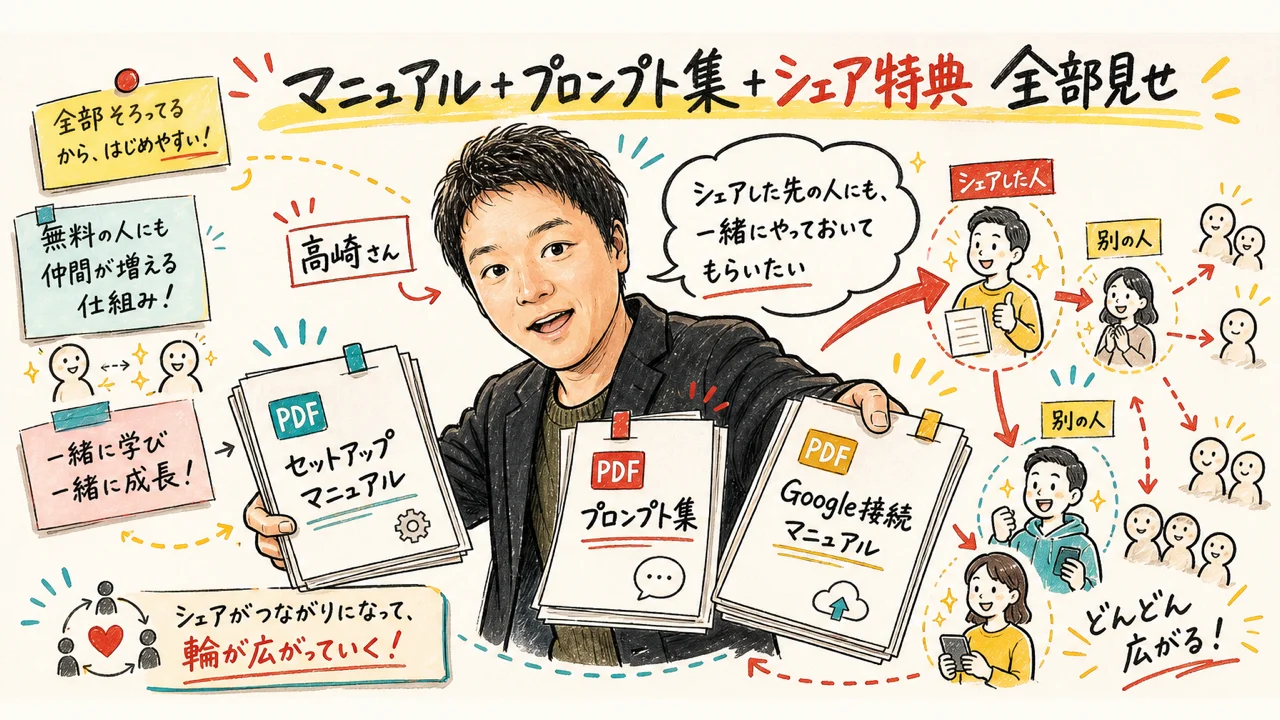 マニュアル+プロンプト集+シェア特典 全部見せ
全部そろってる
から、はじめやすい!
無料の人にも
仲間が増える
仕組み!
一緒に学び
一緒に成長!
高崎さん
シェアした先の人にも、
一緒にやっておいて
もらいたい
シェアした人
別の人
別の人
PDF
セットアップ
マニュアル
PDF
プロンプト集
PDF
Google接続
マニュアル
シェアがつながりになって、
輪が広がっていく!
どんどん
広がる!